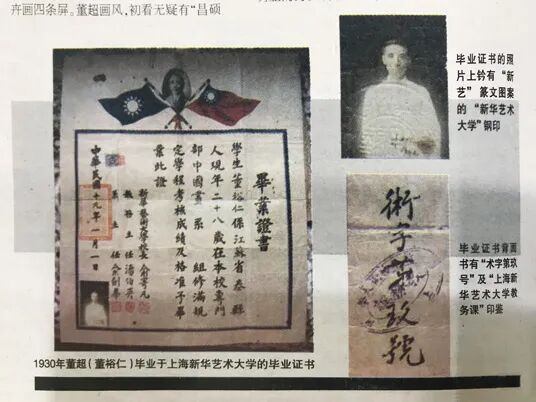 卉画四条屏。董超画风,初看无疑有“昌硕
畢業證書
學生董裕仁係江蘇省泰縣
人現年二十八歲在本校專門
部中國畫系 組修滿規
定學程考核成績及格准予畢
業此證
新華藝術大學校長俞寄凡
教務主任潘伯英
主任俞劍華
中華民國十九年一月一日
毕业证书的照
片上钤有“新
艺”篆文图案
的“新华艺术
大学”钢印
術字第玖號
毕业证书背面
书有“术字第玖
号”及“上海新
华艺术大学教
务课”印鉴
1930年董超(董裕仁)毕业于上海新华艺术大学的毕业证书